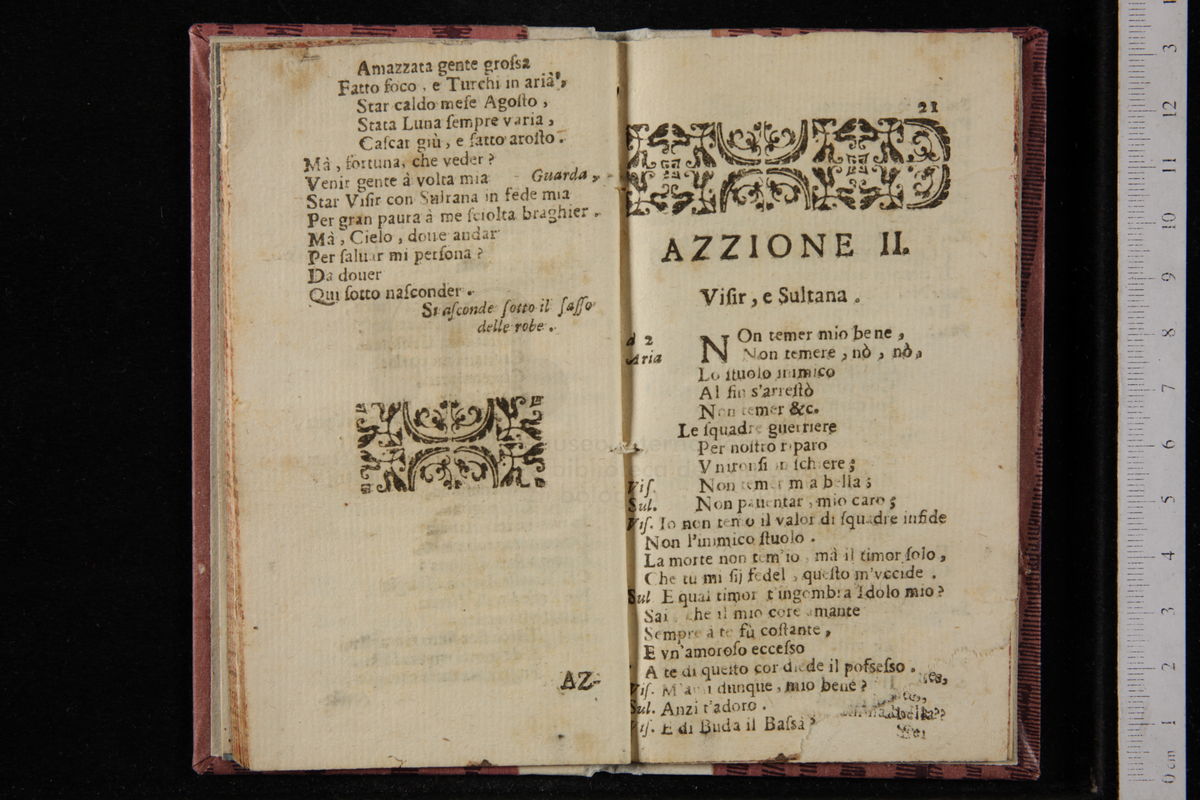 Amazzata gente grossa
Fatto foco, e Turchi in arià,
Star caldo meſe Agoſto,
Stata Luna ſempre varia,
Caſcar giù, e fatto aroſto.
Mà, fortuna, che veder?
Venir gente à volta mia Guarda,
Star Viſir con Sultana in fede mia
Per gran paura à me ſciolta braghier.
Mà, Cielo, doue andar
Per ſaluar mi perſona?
Da douer
Qui ſotto naſconder.
Si aſconde ſotto il ſaſſo
delle robe.
AZ-
21
AZZIONE II.
Viſir, e Sultana.
à 2 NOn temer mio bene,
Aria Non temere, nò, nò,
Lo ſtuolo inimico
Al fin s'arreſtò
Non temer &c.
Le ſquadre guerriere
Per noſtro riparo
Vnironſi in ſchiere;
Viſ. Non temer mia bella;
Sul. Non pauentar, mio caro;
Viſ. Io non temo il valor di ſquadre infide
Non l'inimico ſtuolo.
La morte non tem'io, mà il timor ſolo,
Che tu mi ſij fedel, queſto m'vccide.
Sul. E quai timor t'ingombra Idolo mio?
Sai, che il mio core amante
Sempre à te fù coſtante,
E vn'amoroſo ecceſso
A te di queſto cor diede il poſseſso.
Viſ. M'ami dunque, mio bene?
Sul. Anzi t'adoro.
Viſ. E di Buda il Baſsà?